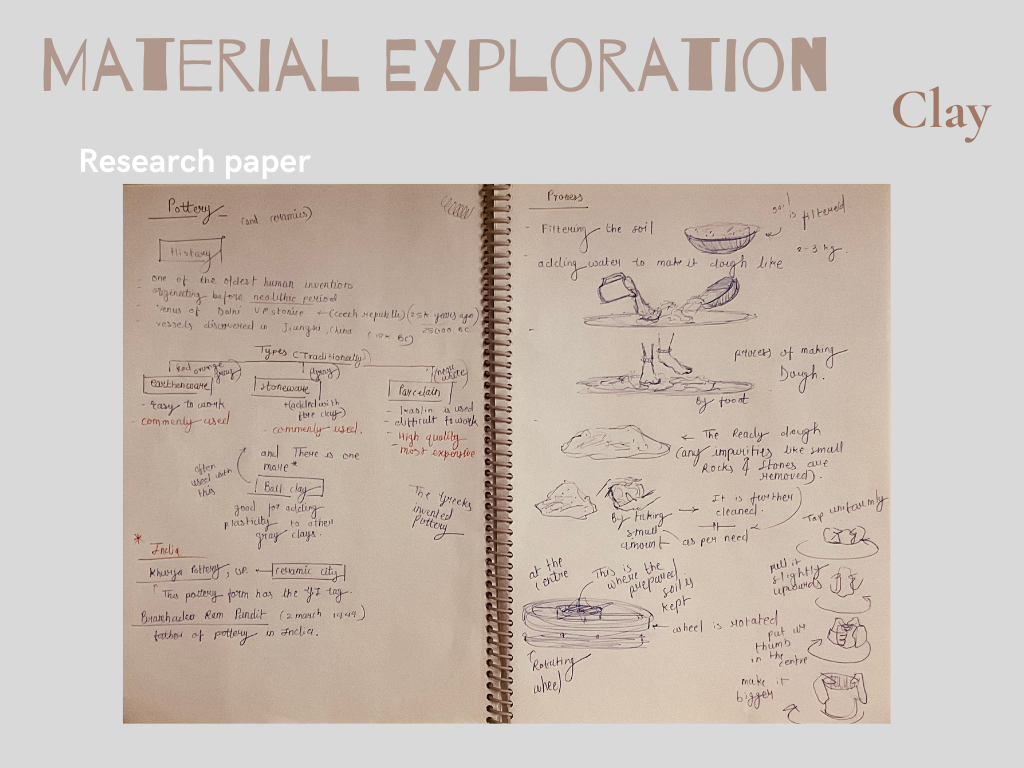 MATERIAL EXPLORATION
Clay
Research paper
Pottery (and ceramics)
History
- one of the oldest human inventions
originating before neolithic period
- Venus of Dolni Vestonice ← (Czech republic) (25k years ago)
25000 BC
vessels discovered in Jiangxi, China
Types (Traditionally)
Red orange
gray
(gray)
white)
Earthenware
Stoneware
Porcelain
- Easy to work
- commonly used
fire clay)
- commonly used.
- kaolin is used
- difficult to work
- High quality
- most expensive
and There is one
more *
often
used with
this
Ball clay
good for adding
plasticity to other
gray clays.
The Greeks
invented
Pottery
* India
Khurja Pottery, UP. ← ceramic city
This pottery form has the GI tag.
Ram Pandit (2 march 1949)
father of pottery in India.
Process
- Filtering the soil
soil
is filtered
2-3 kg.
- adding water to make it dough like
process of making
Dough.
By foot
← The Ready dough
(any impurities like small
Rocks & Stones are
removed).
By taking
small
amount
→ It is further
cleaned.
as per need
Tap uniformly
pull it
slightly
upwards
at the
centre
This is
where the
prepared
soil is
kept
wheel is rotated
put ur
thumb
in the
centre
Rotating
wheel
make it
bigger